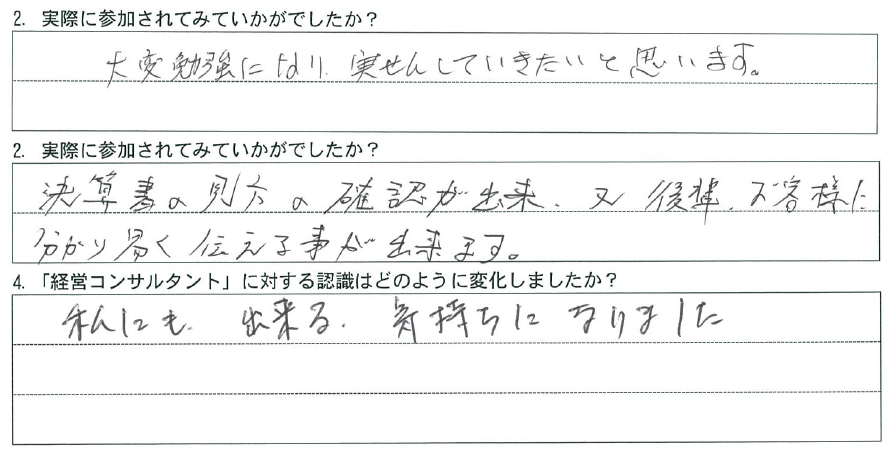 2. 実際に参加されてみていかがでしたか？
大変勉強になり、実せんしていきたいと思います。
2. 実際に参加されてみていかがでしたか？
決算書の見方の確認が出来、又 後輩、お客様に
分かり易く伝える事が出来ます。
4. 「経営コンサルタント」に対する認識はどのように変化しましたか？
私にも、出来る、気持ちになりました